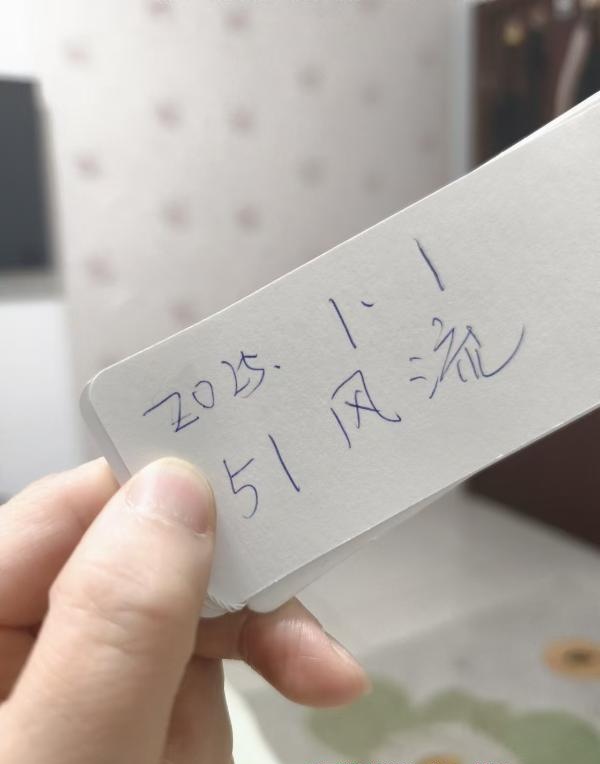 2025. 1. 1
51风流